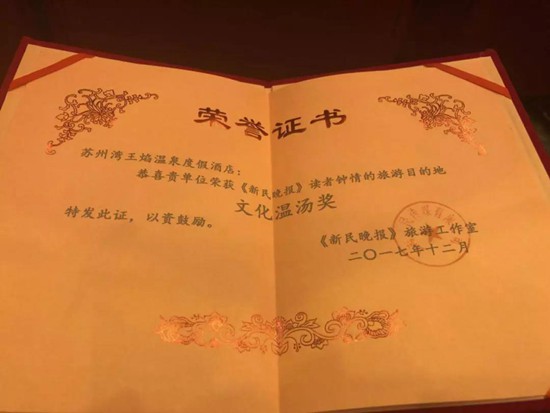 荣誉证书
苏州湾王焰温泉度假酒店：
恭喜贵单位荣获《新民晚报》读者钟情的旅游目的地
文化温汤奖
特发此证，以资鼓励。
《新民晚报》旅游工作室
二〇一七年十二月